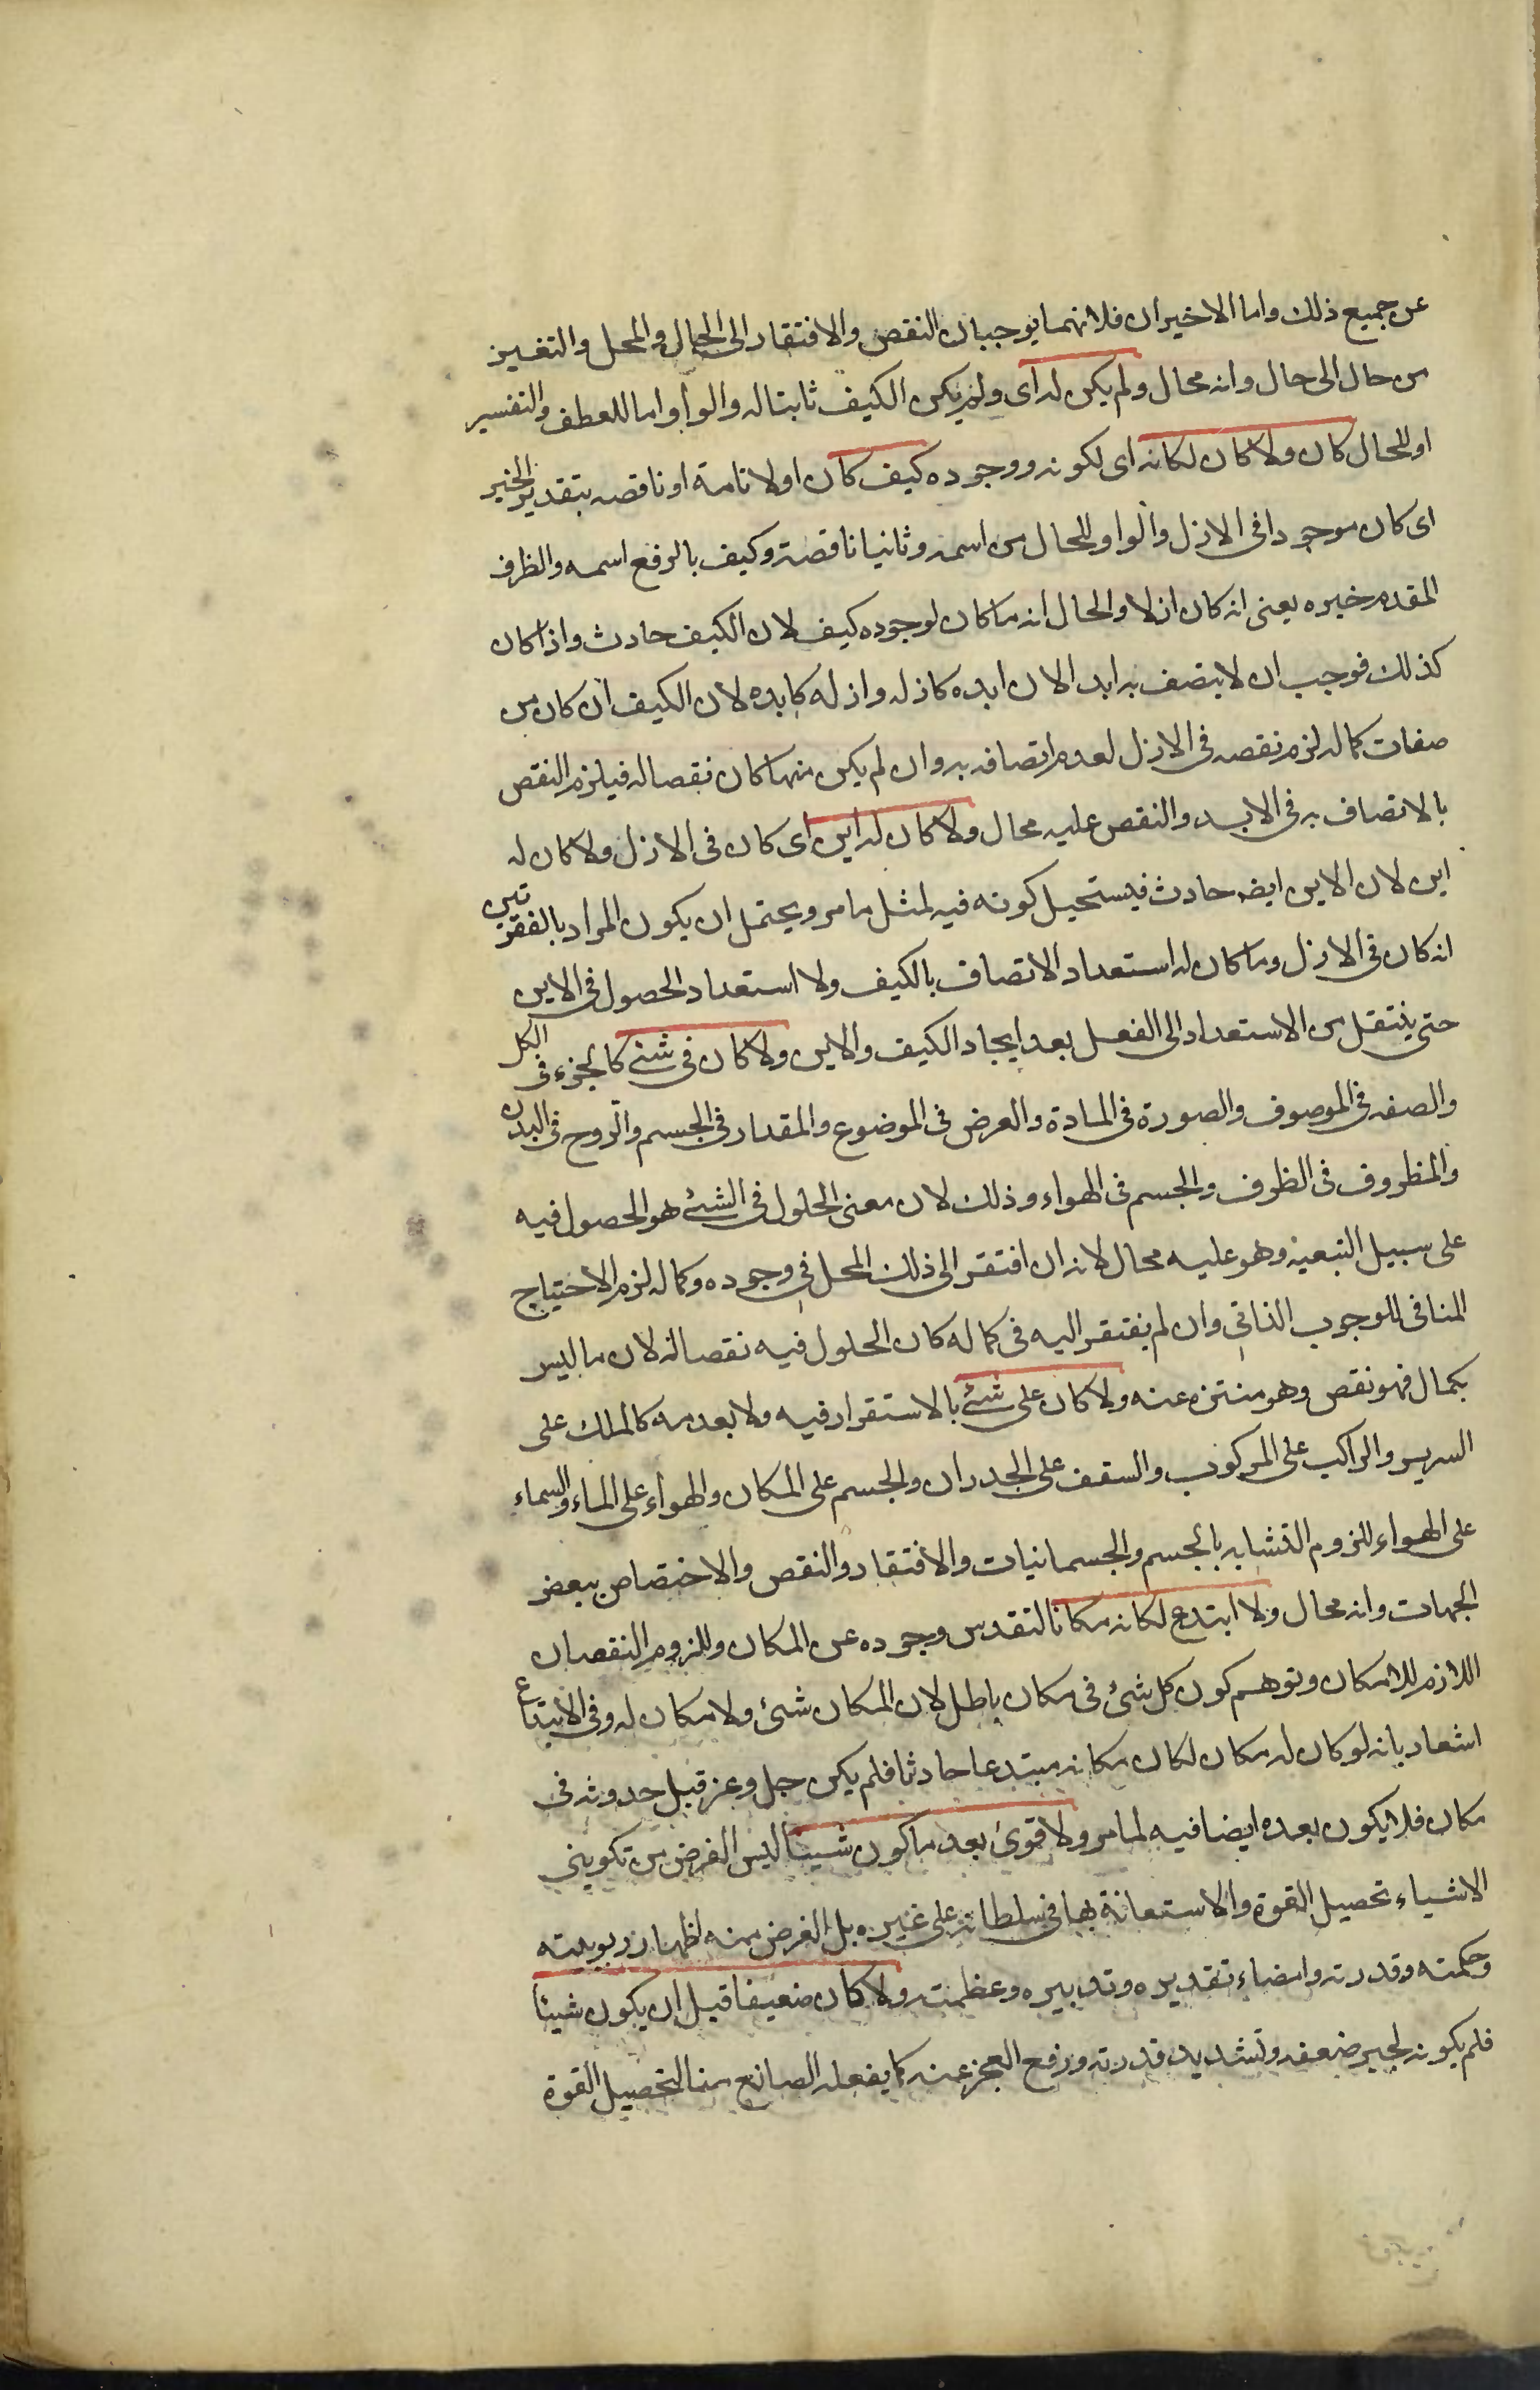 عن جميع ذلك واما الاخيران فلانهما يوجبان النقص والافتقار الى الحال والمحل والتغير
من حال الى حال وانه محال ولم يكن له اى ولم يكن الكيف ثابتا له والواو اما للعطف والتفسير
او للحال كان ولا كان لكانه اى لكونه ووجوده كيف كان اولا تامة او ناقصه بتقدير الخبر
اى كان موجودا فى الازل والواو للحال من اسمه وثانيا ناقصة وكيف بالرفع اسمه والظرف
المقدم خبره يعنى انه كان ازلا والحال انه ما كان لوجوده كيف لان الكيف حادث واذا كان
كذلك فوجب ان لا يتصف به ابدا لان ابده كازله وازله كابده لان الكيف ان كان من
صفات كماله لزم نقصه فى الازل لعدم اتصافه به وان لم يكن منها كان نقصا له فيلزم النقص
بالاتصاف به فى الابد والنقص عليه محال ولا كان له اين اى كان فى الازل ولا كان له
اين لان الاين ايضه حادث فيستحيل كونه فيه لمثل ما مر ويحتمل ان يكون المراد بالفقرتين
انه كان فى الازل وما كان له استعداد الاتصاف بالكيف ولا استعداد الحصول فى الاين
حتى ينتقل من الاستعداد الى الفعل بعد ايجاد الكيف والاين ولا كان فى شئ كالجزء فى الكل
والصفه فى الموصوف والصورة فى المادة والعرض فى الموضوع والمقدار فى الجسم والروح فى البدن
والمظروف فى الظرف والجسم فى الهواء وذلك لان معنى الحلول فى الشئ هو الحصول فيه
على سبيل التبعيه وهو عليه محال لانه ان افتقر الى ذلك المحل فى وجوده وكماله لزم الاحتياج
المنافى للوجوب الذاتى وان لم يفتقر اليه فى كماله كان الحلول فيه نقصا له لان ما ليس
بكمال فهو نقص وهو منتزه عنه ولا كان على شئ بالاستقرار فيه ولا بعدمه كالملك على
السرير والراكب على المركوب والسقف على الجدران والجسم على المكان والهواء على الماء والسماء
على الهواء للزوم التشابه بالجسم والجسمانيات والافتقار والنقص والاختصاص ببعض
الجهات وانه محال ولا ابتدع لكانه مكانا لتقدس وجوده عن المكان وللزوم النقصان
اللازم للامكان وتوهم كون كل شئ فى مكان باطل لان المكان شئ ولا مكان له وفى الابتداع
اشعار بانه لو كان له مكان لكان مكانه مبتدعا حادثا فلم يكن جل وعز قبل حدوثه فى
مكان فلا يكون بعده ايضا فيه لما مر ولا قوى بعد ما كون شيئا ليس الغرض من تكوينى
الاشياء تحصيل القوة والاستعانة بها فى سلطانه على غيره بل الغرض منه اظهار ربوبيته
وحكمته وقدرته وامضاء تقديره وتدبيره وعظمته ولا كان ضعيفا قبل ان يكون شيئا
فلم يكونه لجبر ضعفه وتشديد قدرته ورفع العجز عنه كما يفعله الصانع منا لتحصيل القوة